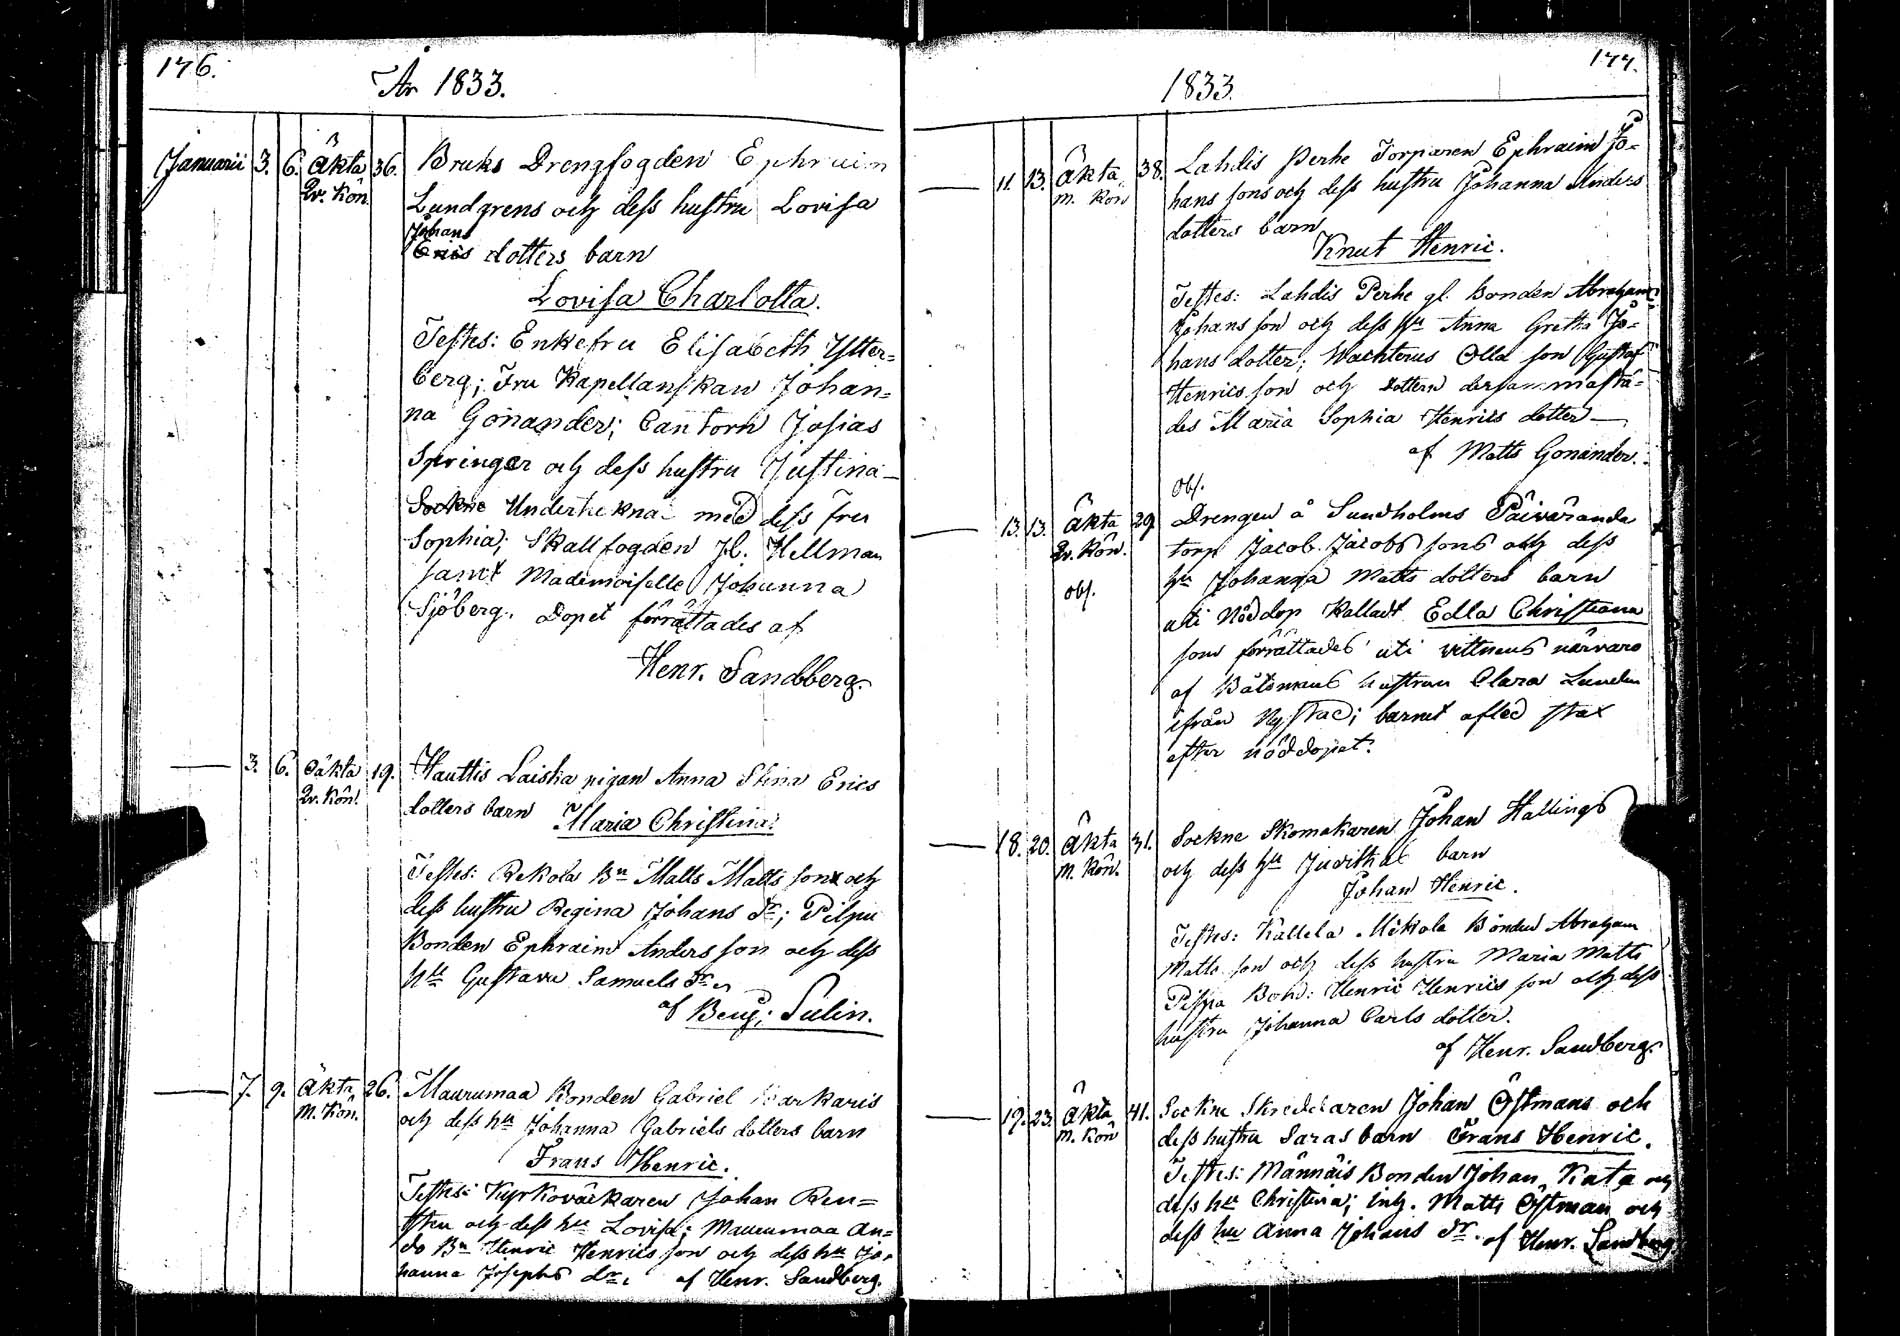 176.
År 1833.
Januarii 3. 6. Äkta 36. Bruks Drengfogden Ephraim
Qv. Kön. Lundgrens och dess hustru Lovisa
Johans
Erics dotters barn
Lovisa Charlotta.
Testes: Enkefru Elisabeth Ytter=
berg; Fru Kapellanskan Johan=
na Gonander; Cantorn Josias
Springer och dess hustru Justina
Sockne med dess Fru
Sophia; Skallfogden H. Hellman
samt Mademoiselle Johanna
Sjöberg. Dopet förrättades af
Henr. Sandberg.
3. 6. Oäkta 19. Hauttis Laiska pigan Anna Stina Erics
Qv. Kön. dotters barn Maria Christina.
Testes: Rekola Bn Matts Matts son och
dess hustru Regina Johans dr; Pilpu
Bonden Ephraim Anders son och dess
hu Gustava Samuels dr
af Benj: Sulin.
7. 9. Äkta 26. Maurumaa Bonden Gabriel Markaris
M. Kön. och dess hu Johanna Gabriels dotters barn
Frans Henric.
Testes: Kyrkoväktaren Johan Ren=
sten och dess hu Lovisa; Maurumaa An=
do Bn Henric Henrics son och dess hu Jo=
hanna Josephs dr. af Henr. Sandberg.
177.
1833.
11. 13. Äkta 38. Lahdis Perhe Torparen Ephraim Jo=
M. Kön hans sons och dess hustru Johanna Anders
dotters barn
Knut Henric.
Testes: Lahdis Perhe gl. Bonden Abraham
Johans son och dess hu Anna Gretha Jo=
hans dotter; Wachterus Olla son Gustaf
Henrics son och dottern dersammastä=
des Maria Sophia Henrics dotter
af Matts Gonander.
Obs.
13. 13. Äkta 29 Drengen å Sundholms Päiväranda
Qv. Kön. torp Jacob Jacobs sons och dess
hu Johanna Matts dotters barn
obs. uti Nöddop kalladt Edla Christiana
som förrättades uti vittnens närvaro
af Båtsmans hustrun Clara Lundin
ifrån Nystad; barnet afled strax
efter nöddopet.
18. 20. Äkta 31. Sockne Skomakaren Johan Hallings
M. Kön. och dess hu Judiths barn
Johan Henric.
Testes: Kallela Mikola Bonden Abraham
Matts son och dess hustru Maria Matts
Pispa Bond: Henric Henrics son och dess
hustru Johanna Carls dotter.
af Henr. Sandberg.
19. 23. Äkta 41. Sockne Skreddaren Johan Östmans och
M. Kön dess hustru Saras barn Frans Henric.
Testes: Männäis Bonden Johan Kata och
dess hu Christina; Inh. Matts Östman och
dess hu Anna Johans dr. af Henr. Sandberg